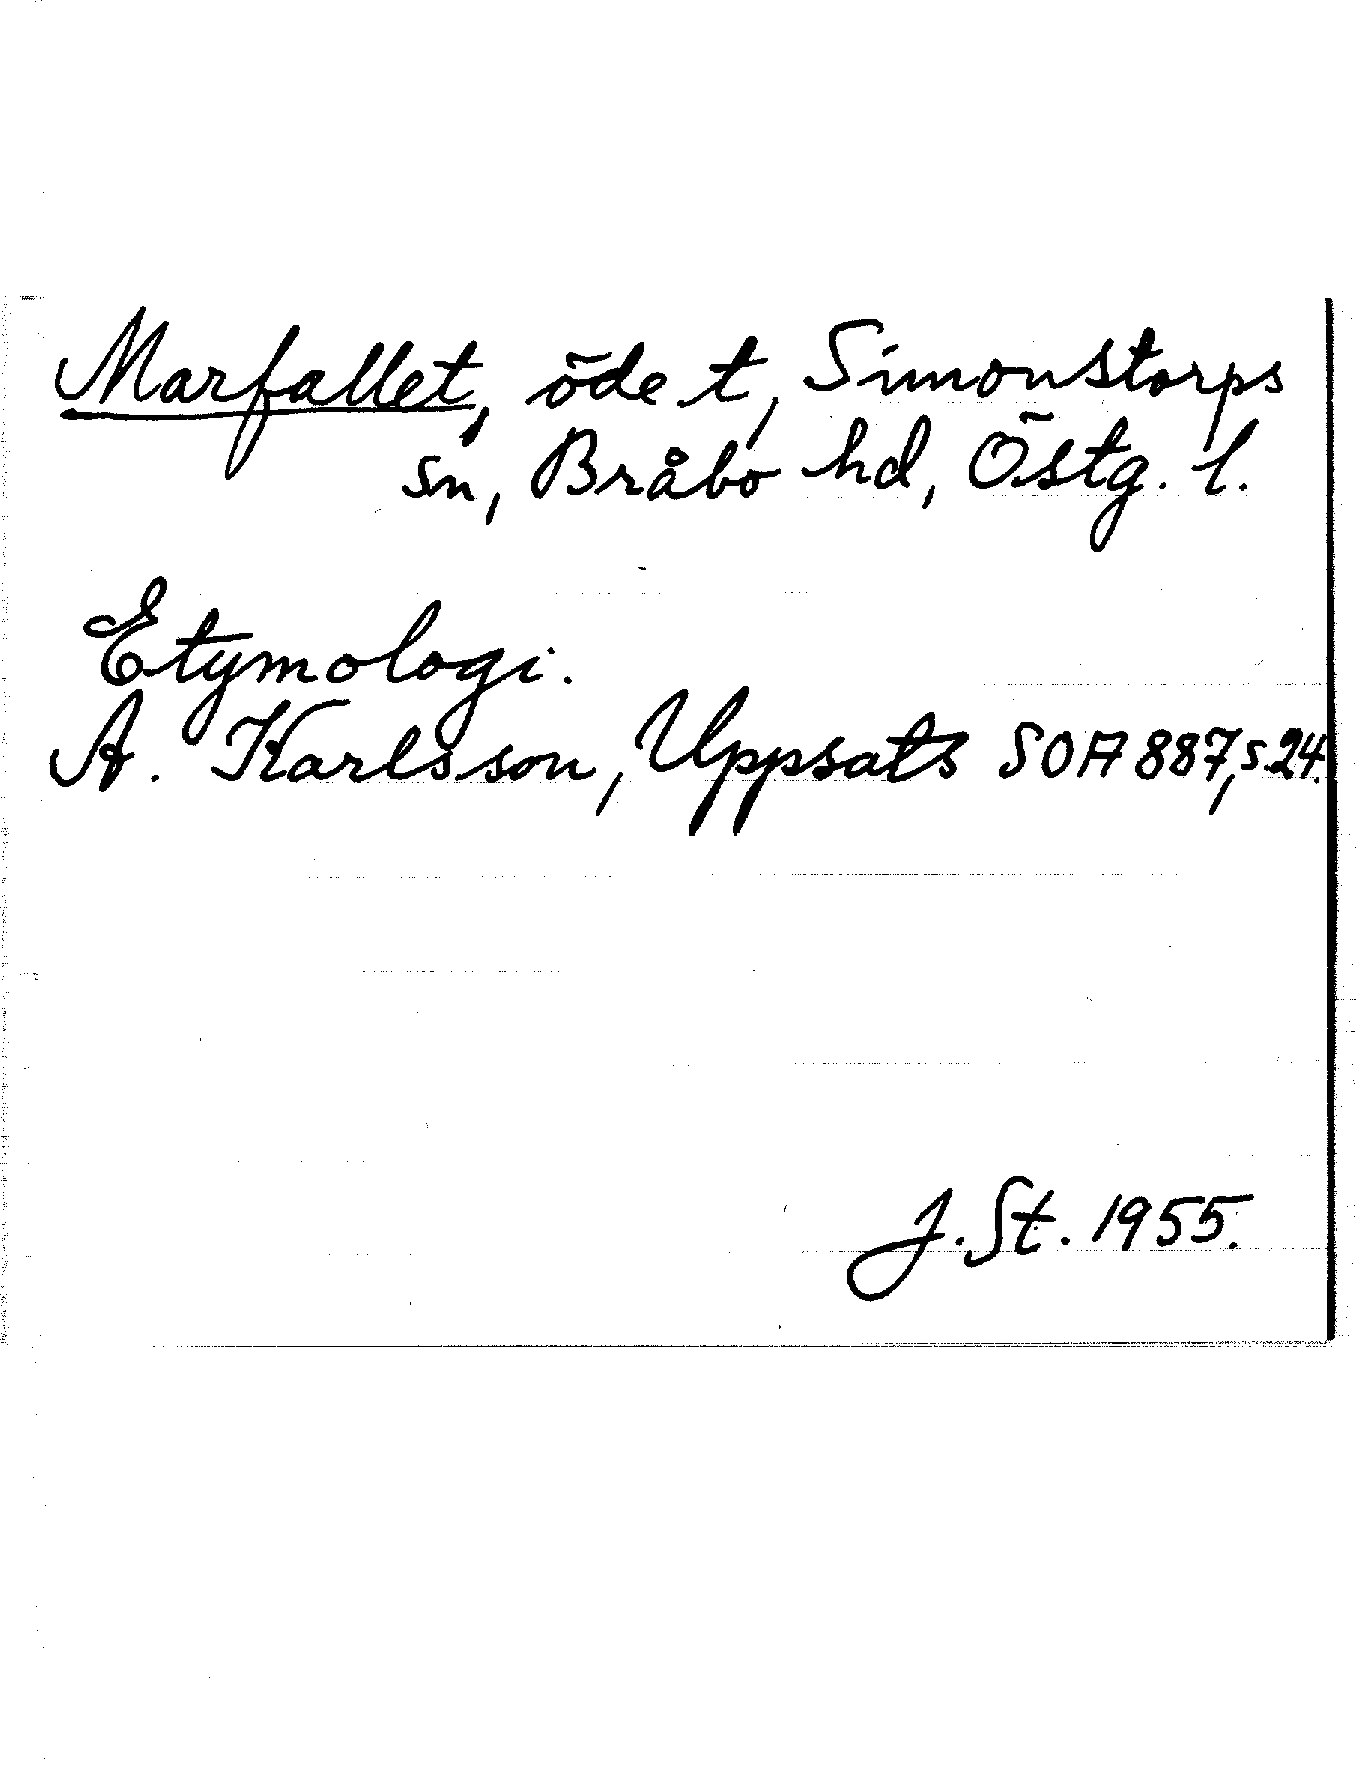 Marfallet, öde t, Simonstorps
sn, Bråbo hd, Östg. l.
Etymologi.
A. Karlsson, Uppsats SOA 887, s. 24.
J. St. 1955.